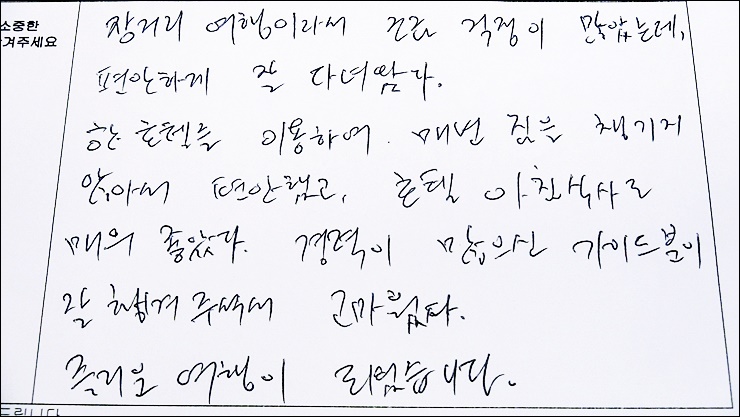 소중한
겨주세요
장거리 여행이라서 건강 걱정이 많았는데,
편안하게 잘 다녀왔다.
한 호텔을 이용하여 매번 짐을 챙기지
않아서 편안했고, 호텔 아침식사도
매우 좋았다. 경력이 많으신 가이드분이
잘 챙겨 주셔서 고마웠다.
즐거운 여행이 되었습니다.
드립니다